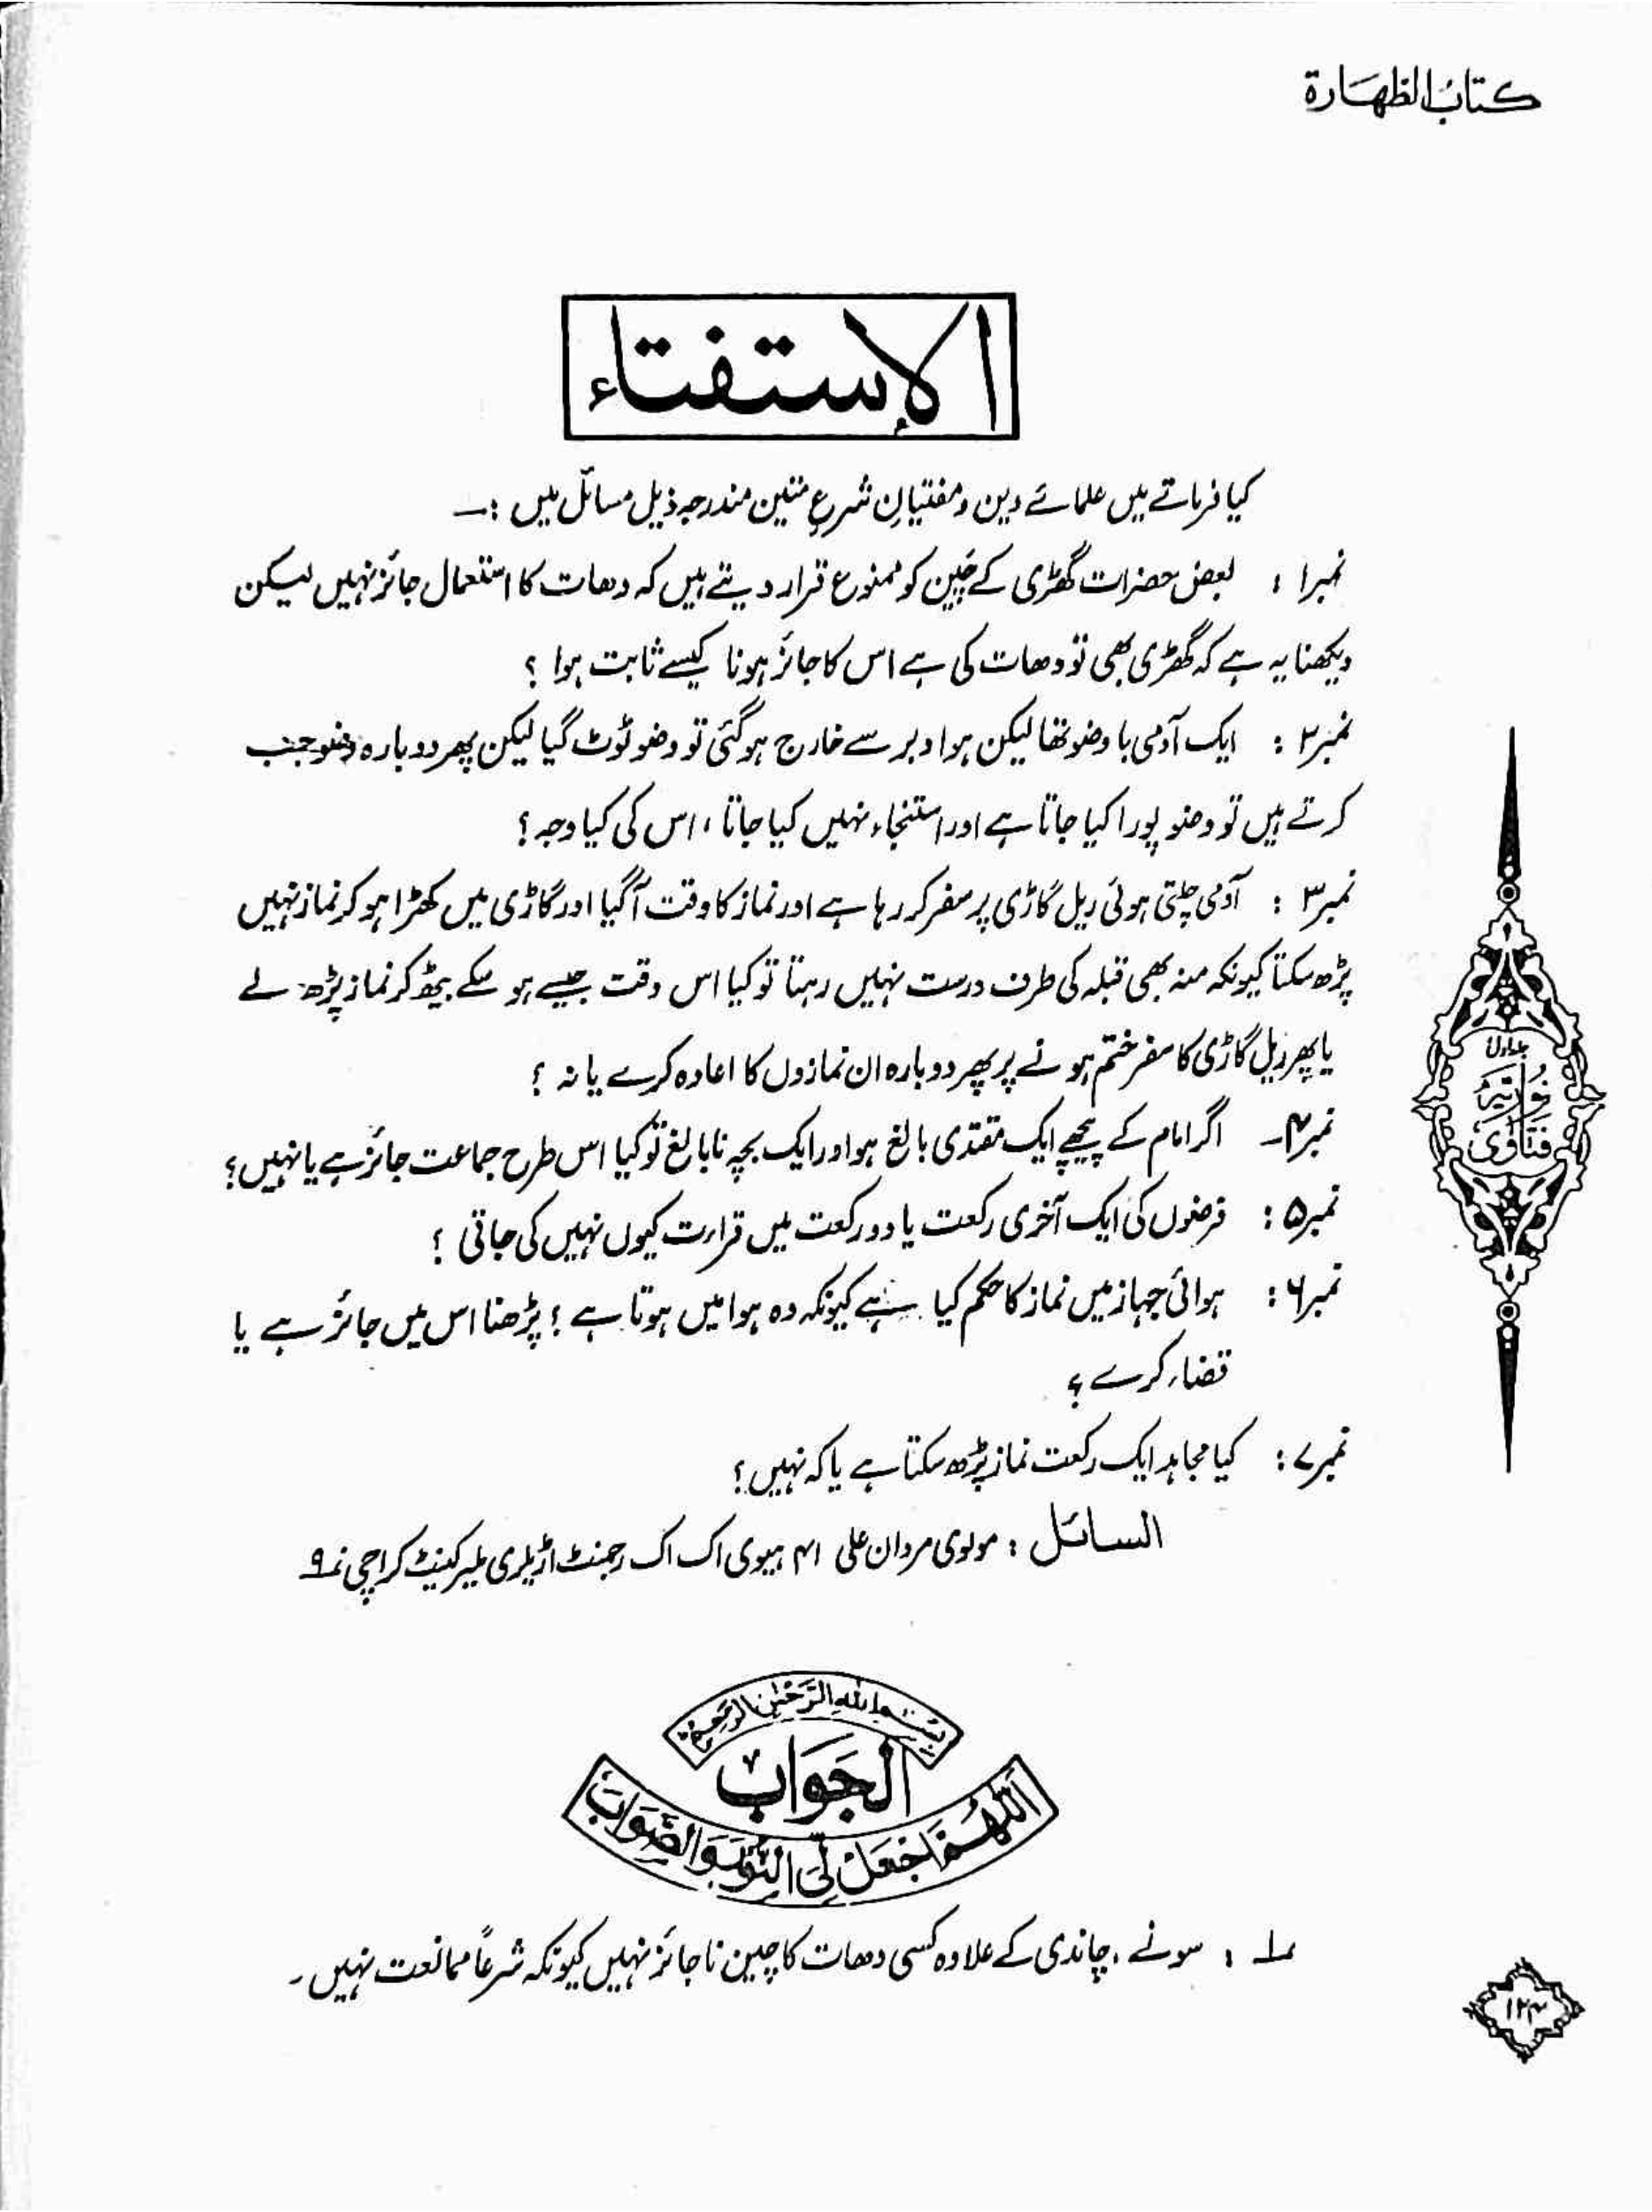 کتاب الطهارة
الإستفتاء
کیا فرماتے ہیں علمائے دین و مفتیانِ شرعِ متین مندرجہ ذیل مسائل میں :۔
نمبر۱ : بعض حضرات گھڑی کے چین کو ممنوع قرار دیتے ہیں کہ دھات کا استعمال جائز نہیں لیکن
دیکھنا یہ ہے کہ گھڑی بھی تو دھات کی ہے اس کا جائز ہونا کیسے ثابت ہوا ؟
نمبر۲ : ایک آدمی با وضو تھا لیکن ہوا دبر سے خارج ہوگئی تو وضو ٹوٹ گیا لیکن پھر دوبارہ وضو جب
کرتے ہیں تو وضو پورا کیا جاتا ہے اور استنجاء نہیں کیا جاتا ، اس کی کیا وجہ ؟
نمبر۳ : آدمی چلتی ہوئی ریل گاڑی پر سفر کر رہا ہے اور نماز کا وقت آگیا اور گاڑی میں کھڑا ہو کر نماز نہیں
پڑھ سکتا کیونکہ منہ بھی قبلہ کی طرف درست نہیں رہتا تو کیا اس وقت جیسے ہو سکے بیٹھ کر نماز پڑھ لے
یا پھر ریل گاڑی کا سفر ختم ہونے پر پھر دوبارہ ان نمازوں کا اعادہ کرے یا نہ ؟
نمبر۴۔ اگر امام کے پیچھے ایک مقتدی بالغ ہو اور ایک بچہ نابالغ تو کیا اس طرح جماعت جائز ہے یا نہیں ؟
نمبر۵ : فرضوں کی ایک آخری رکعت یا دو رکعت میں قراءت کیوں نہیں کی جاتی ؟
نمبر۶ : ہوائی جہاز میں نماز کا حکم کیا ہے کیونکہ وہ ہوا میں ہوتا ہے ؟ پڑھنا اس میں جائز ہے یا
قضاء کرے ؟
نمبر۷ : کیا مجاہد ایک رکعت نماز پڑھ سکتا ہے یا کہ نہیں ؟
السائل : مولوی مردان علی ۴۱ ہیوی اک اک رجمنٹ آرٹلری ملیر کینٹ کراچی نمبر ۹
جلد اول
فتاوی نوریہ
بِسْمِ اللهِ الرَّحْمٰنِ الرَّحِيْمِ
الجَوَاب
اَللّٰهُمَّ اجْعَلْ لِيَ النُّوْرَ وَالصَّوَابَ
۱ : سونے ، چاندی کے علاوہ کسی دھات کا چین ناجائز نہیں کیونکہ شرعاً ممانعت نہیں ۔
۱۲۴